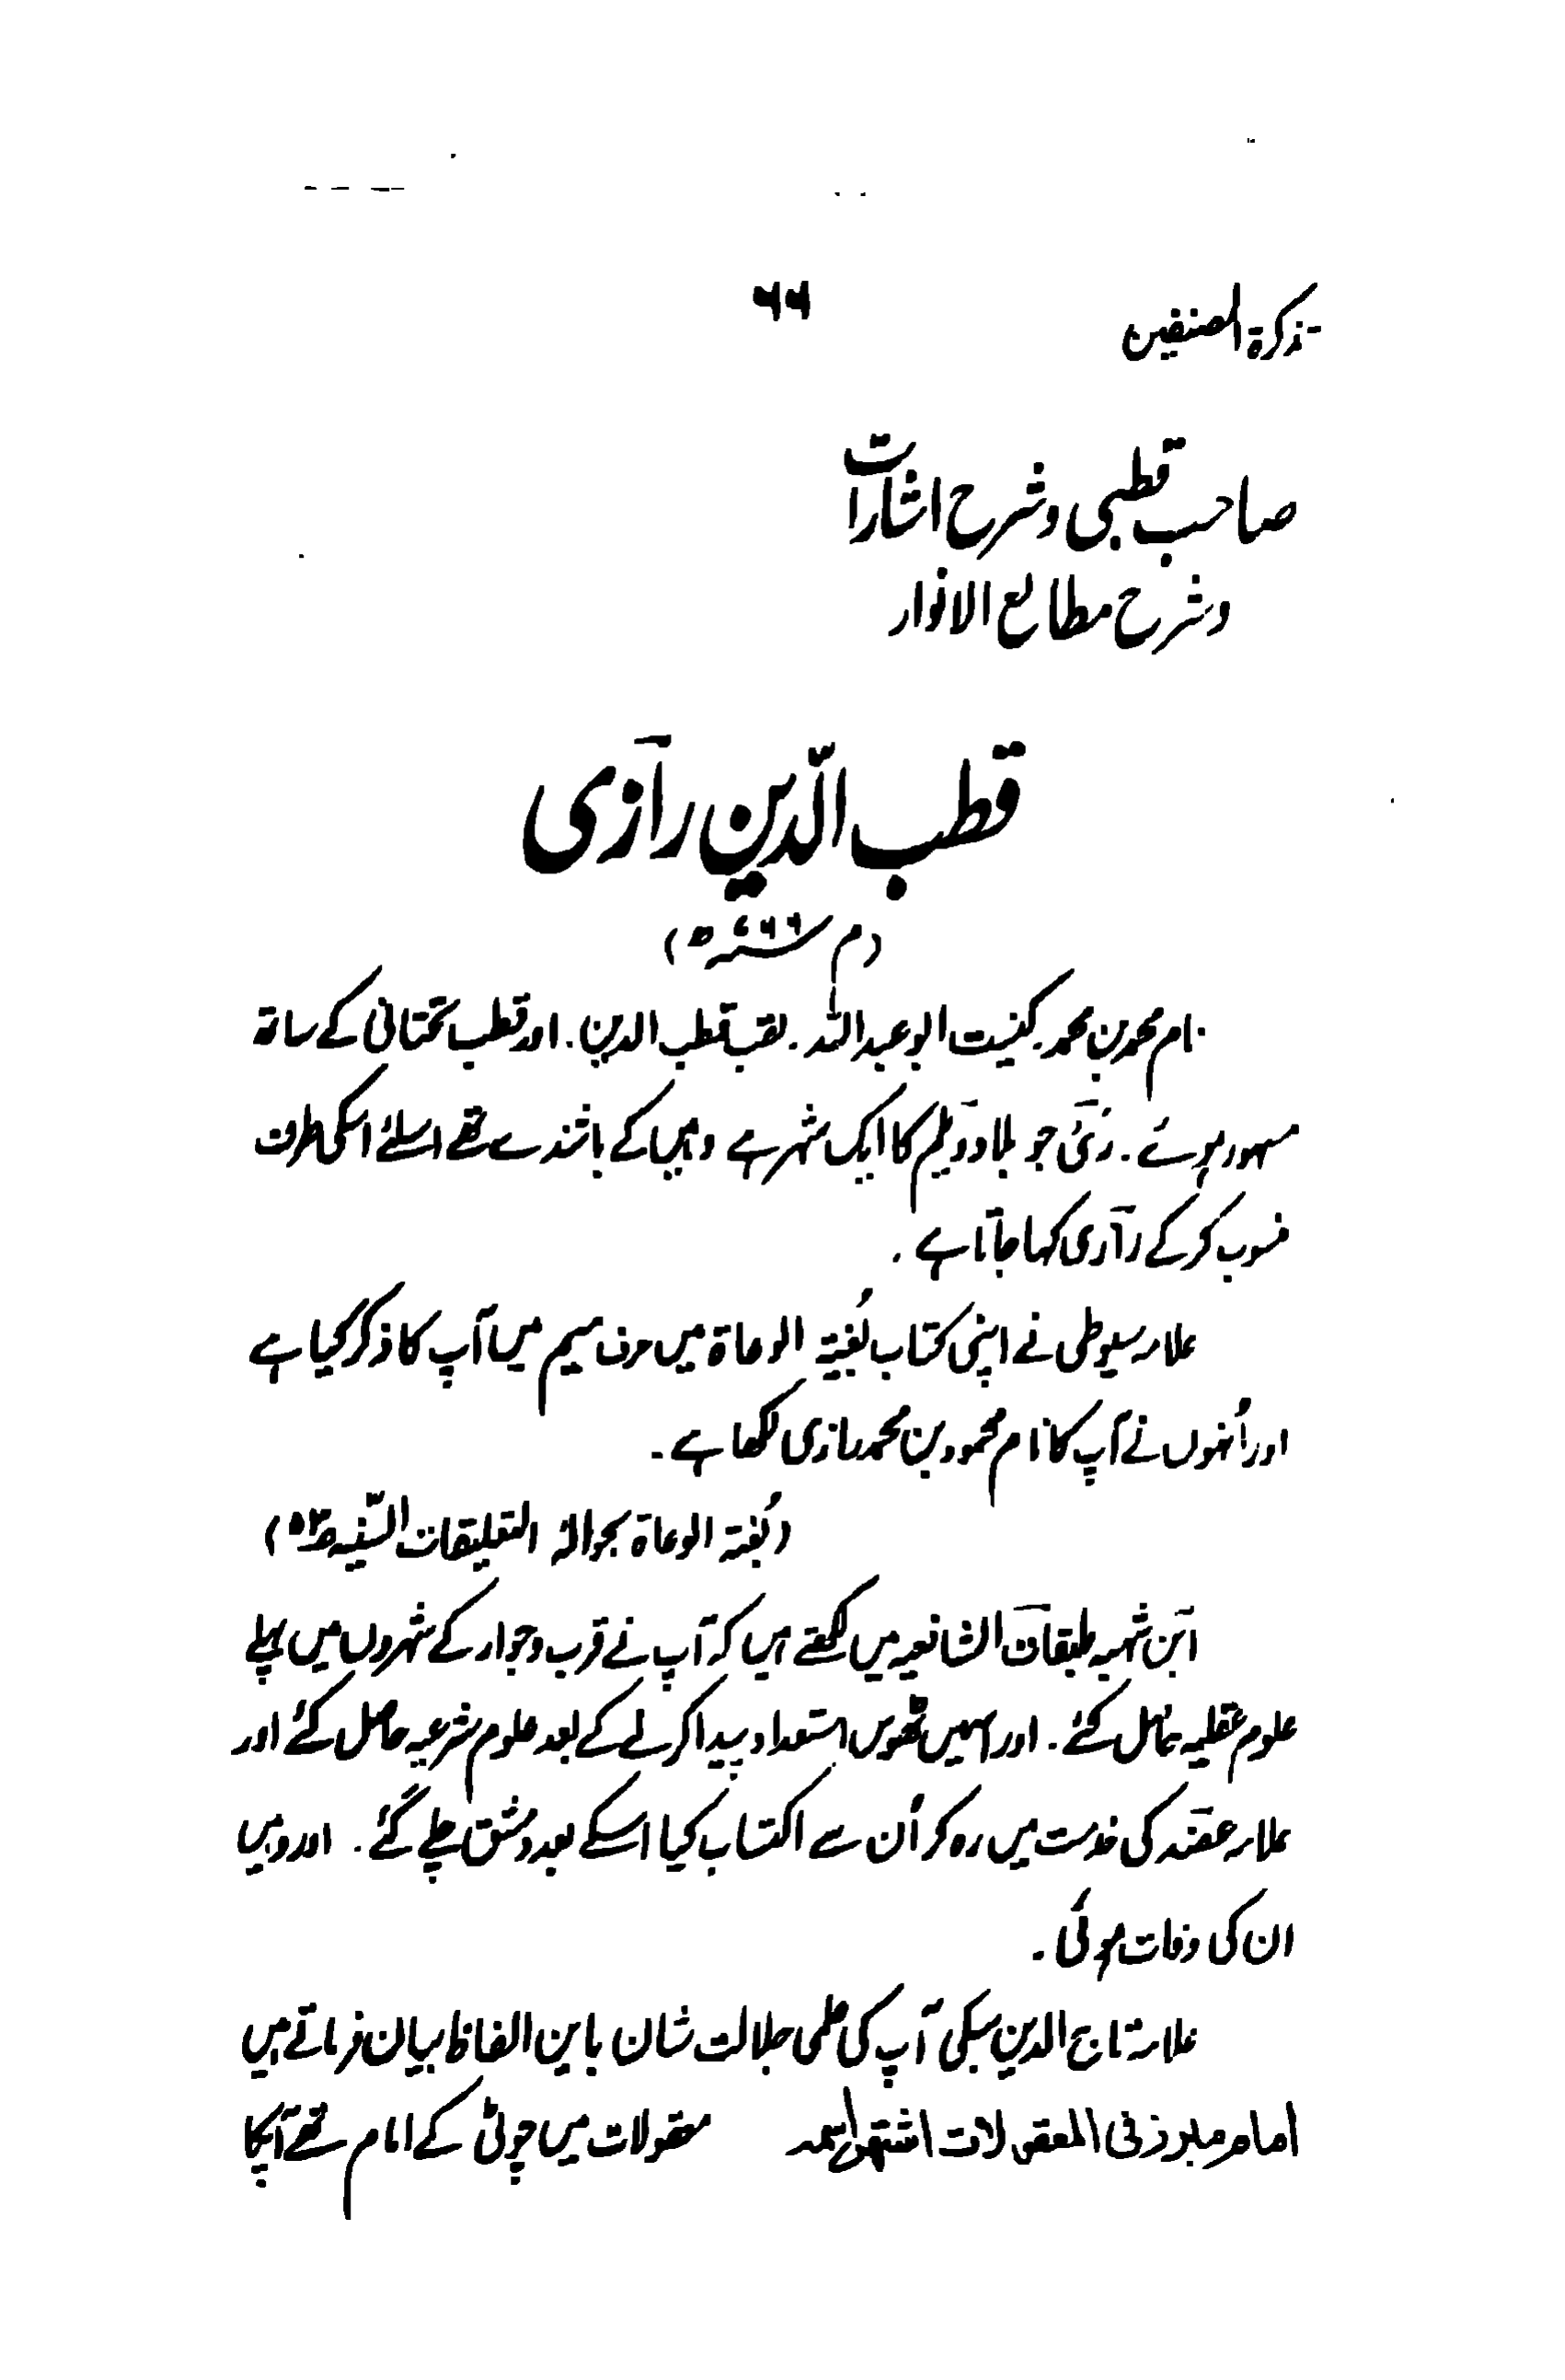 تذکرۃ المصنفین
۶۶
صاحب قطبی و شرح اشارات
و شرح مطالع الانوار
قطب الدّین رازی
(م ۷۶۶ھ)
نام محمد بن محمد۔ کنیت ابو عبداللہ۔ لقب قطب الدین۔ اور قطب تحتانی کے ساتھ
مشہور ہوئے۔ رَئی جو بلاد دیلم کا ایک شہر ہے وہیں کے باشندے تھے اسلئے اسکی طرف
منسوب کر کے رازی کہا جاتا ہے۔
علامہ سیوطی نے اپنی کتاب بُغیۃ الوعاۃ میں حرف میم میں آپ کا ذکر کیا ہے
اور اُنہوں نے آپ کا نام محمود بن محمد رازی لکھا ہے۔
(بُغیۃ الوعاۃ بحوالہ التعلیقات السّنیہ)
ابن شہبہ طبقات الشافعیہ میں لکھتے ہیں کہ آپ نے قرب و جوار کے شہروں میں پہلے
علوم عقلیہ حاصل کئے۔ اور اسمیں ٹھوس استعداد پیدا کر لے کے بعد علوم شرعیہ حاصل کئے اور
علامہ عضد کی خدمت میں رہ کر اُن سے اکتساب کیا اسکے بعد دمشق چلے گئے۔ اور وہیں
ان کی وفات ہوئی۔
علامہ تاج الدین سبکی آپ کی علمی جلالت شان باین الفاظ بیان فرماتے ہیں
امام مبرز فی المعقولات اشتھر اسمہ معقولات میں چوٹی کے امام تھے آپکا